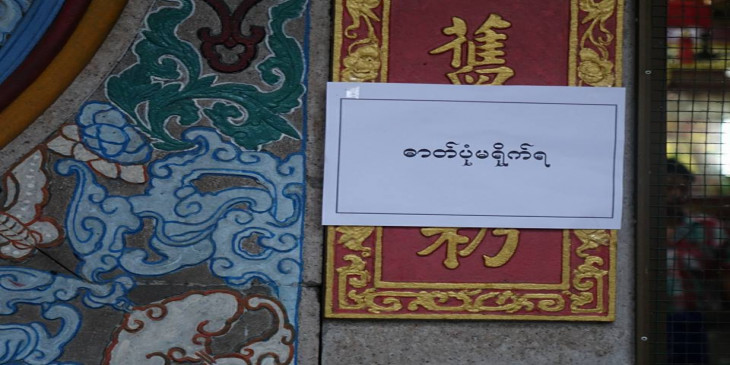 舊
ဓာတ်ပုံမရိုက်ရ